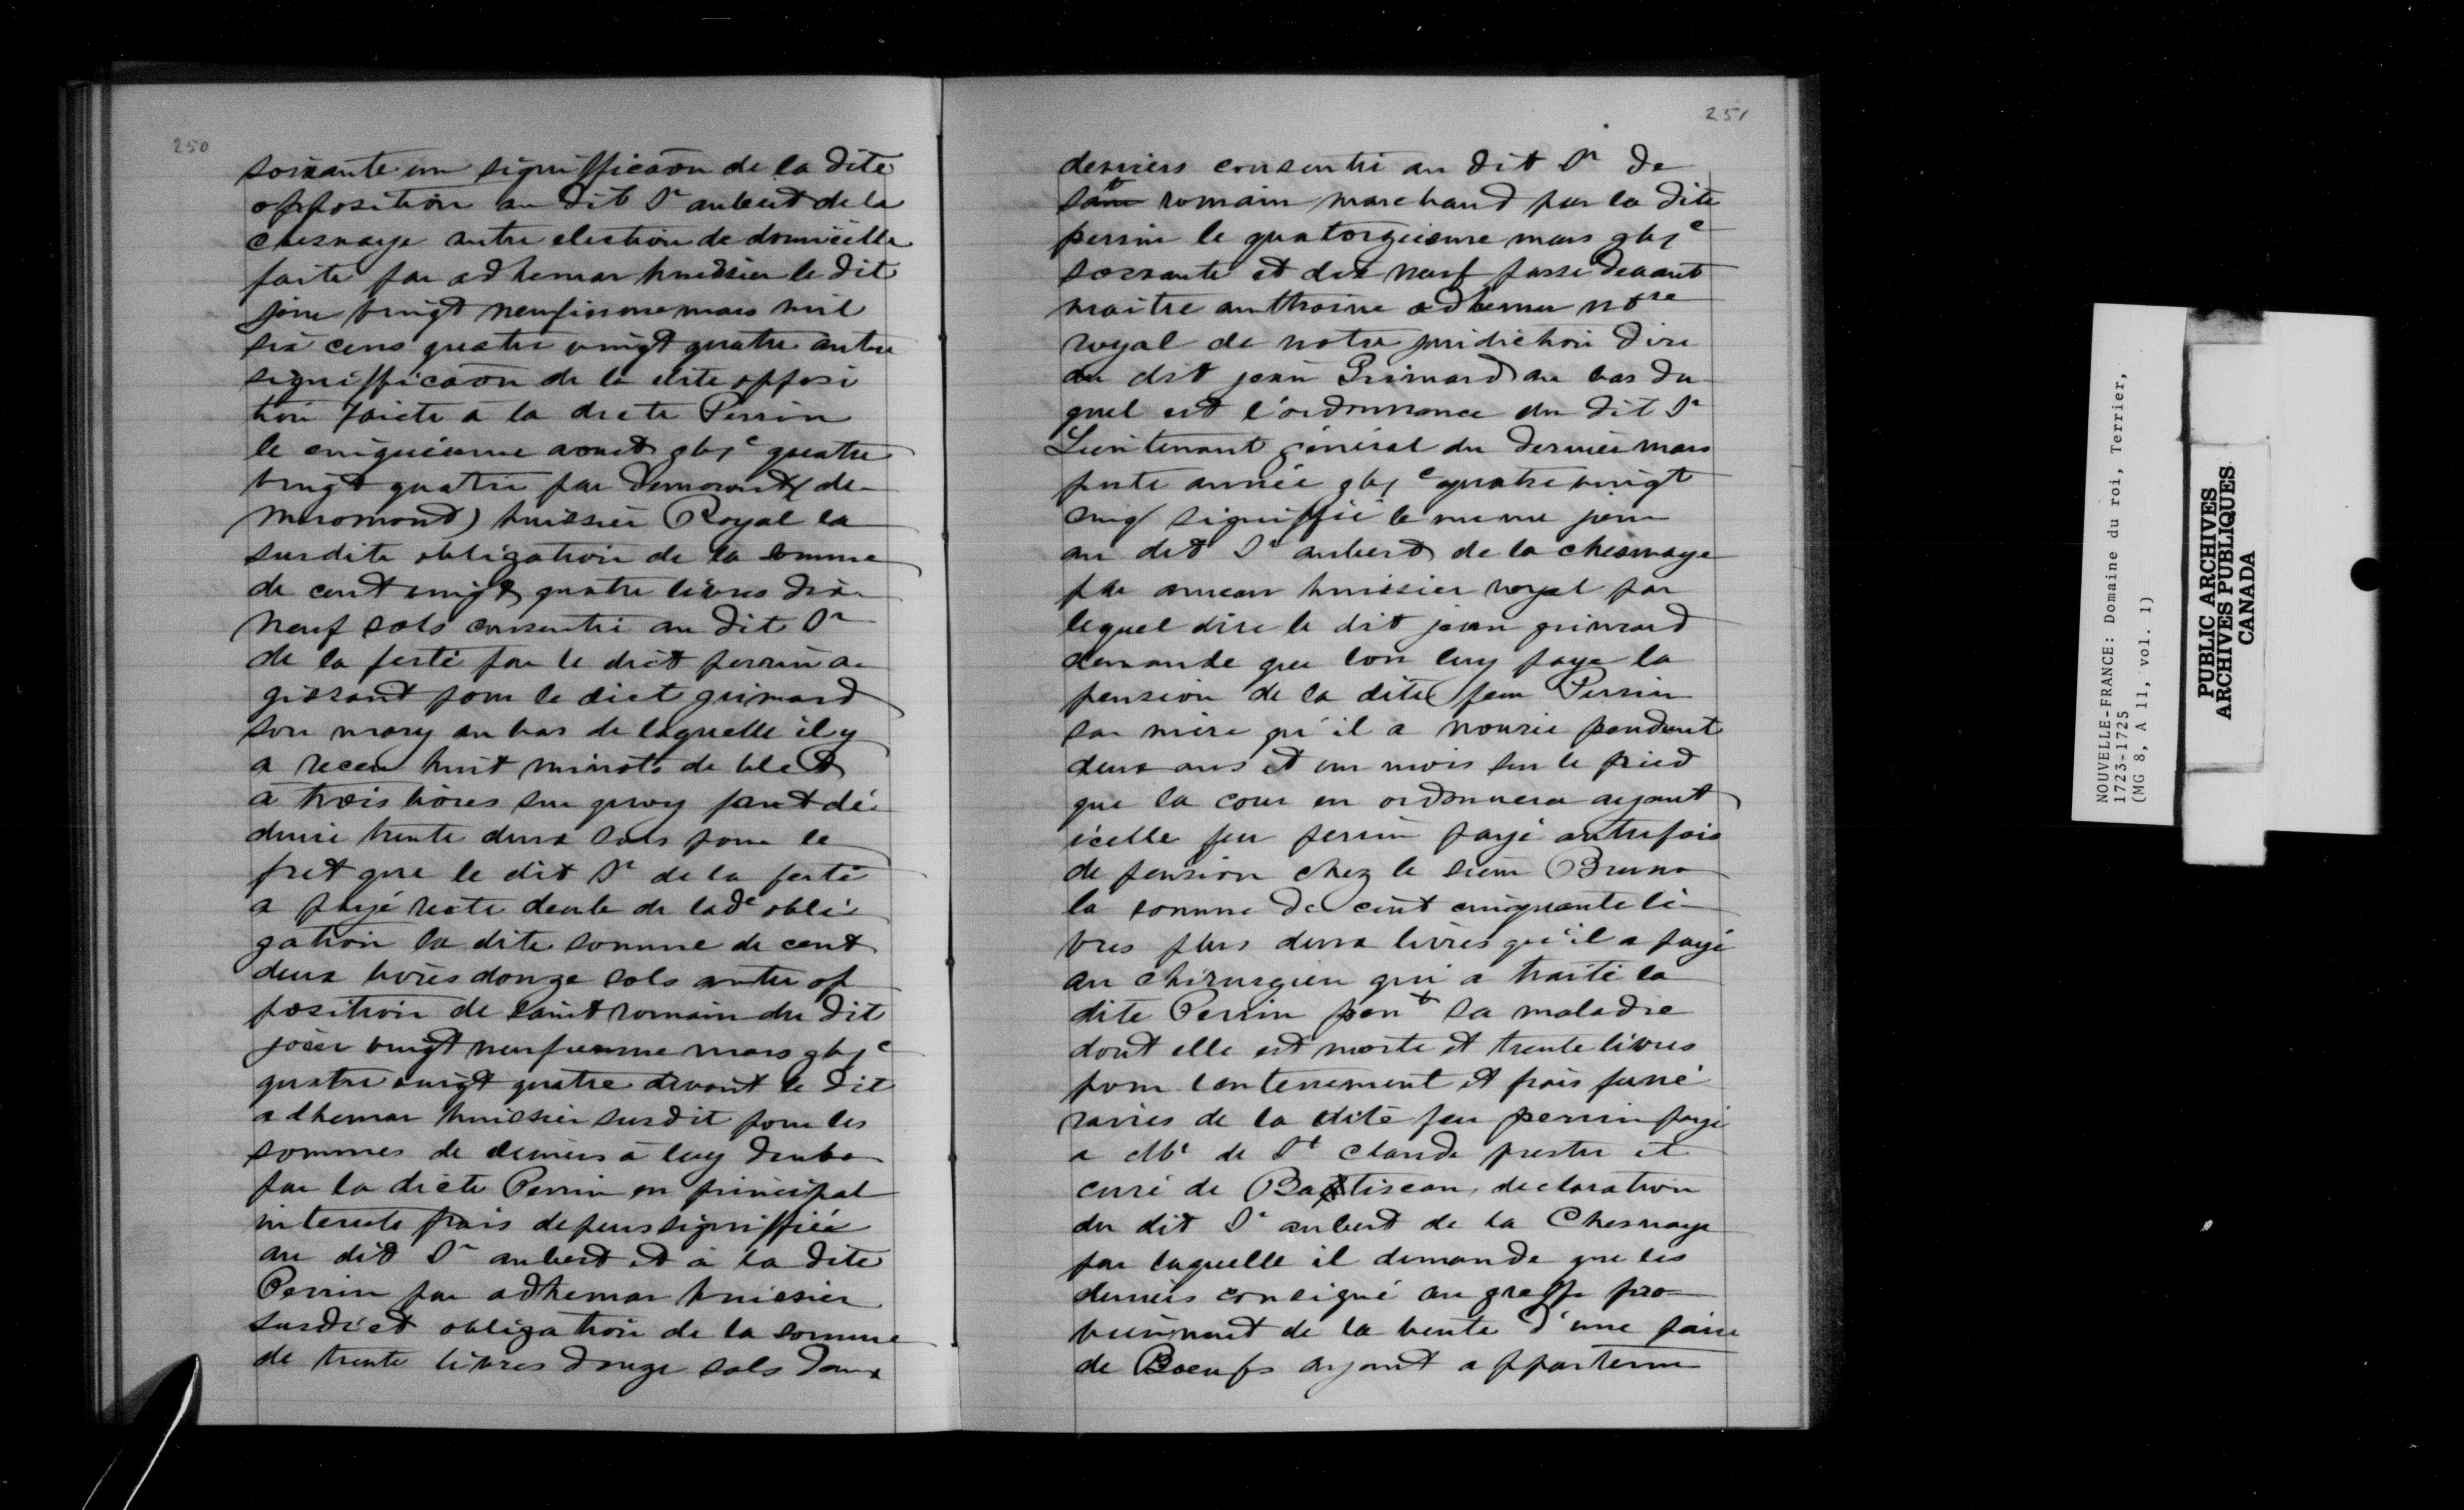 250
soixante un signifficãon de la dite
opposition au dit Sr aubert de la
chesnaye autre election de domicille
faite par adhemar huissier le dit
jour vingt neufiesme mars mil
six cens quatre vingt quatre autre
signifficãon de la dite opposi
tion faicte a la dicte Perrin
le cinquiesme aoust gbje quatre
vingt quatre par demeromont (de
meromont) huissier Royal la
susdite obligation de la somme
de cent vingt quatre livres dix
neuf sols consentie au dit Sr
de la ferté par le dict perrin a
gissant pour le dict grimard
son mary au bas de laquelle il y
a receu huit minots de bled
a trois livres sur quoy faut dé
duire trente deux sols pour le
fret que le dit Sr de la ferté
a payé reste deube de lade obli
gation la dite somme de cent
deux livres douze sols autre op
position de saint romain du dit
jour vingt neufiesme mars gbje
quatre vingt quatre devant le dit
adhemar huissier susdit pour les
sommes de deniers à luy deube
par la dicte Perrin en principal
interests frais depens signiffiée
au dit Sr aubert et à la dite
Perrin par adhemar huissier
susdict obligation de la somme
de trente livres douze sols deux
251
derniers consentie au dit Sr de
St romain marchand par la dite
perrin le quatorziesme mars gbje
soixante et dix neuf passé devant
maitre anthoine adhemar notre
royal de notre juridiction dire
du dit jean Grimard au bas du
quel est l'ordonnance du dit Sr
Lieutenant général du dernier mars
pnte année gbje quatre vingt
cinq signiffié le meme jour
au dit Sr aubert de la chesnaye
par ameau huissier royal par
lequel dire le dit jean grimard
demande que lon luy paye la
pension de la dite feu Perrin
sa mère qu'il a nourie pendant
deux ans et un mois sur le pried
que la cour en ordonnera ayant
icelle feu perrin payé autrefois
de pension chez le sieur Bruno
la somme de cent cinquante li
vres plus deux livres qu'il a payé
au chirurgien qui a traité la
dite Perrin pent sa maladie
dont elle est morte et trente livres
pour lenterrement et frais funé
raires de la dite feu perrin payé
a Mr de St Claude prestre et
curé de Batiscan, declaration
du dit Sr aubert de la Chesnaye
par laquelle il demande que les
deniers consigné au greffe pro
vennant de la vente d'une paire
de Boeufs ayant appartenu
NOUVELLE-FRANCE: Domaine du roi, Terrier,
1723-1725
(MG 8, A 11, vol. 1)
PUBLIC ARCHIVES
ARCHIVES PUBLIQUES
CANADA